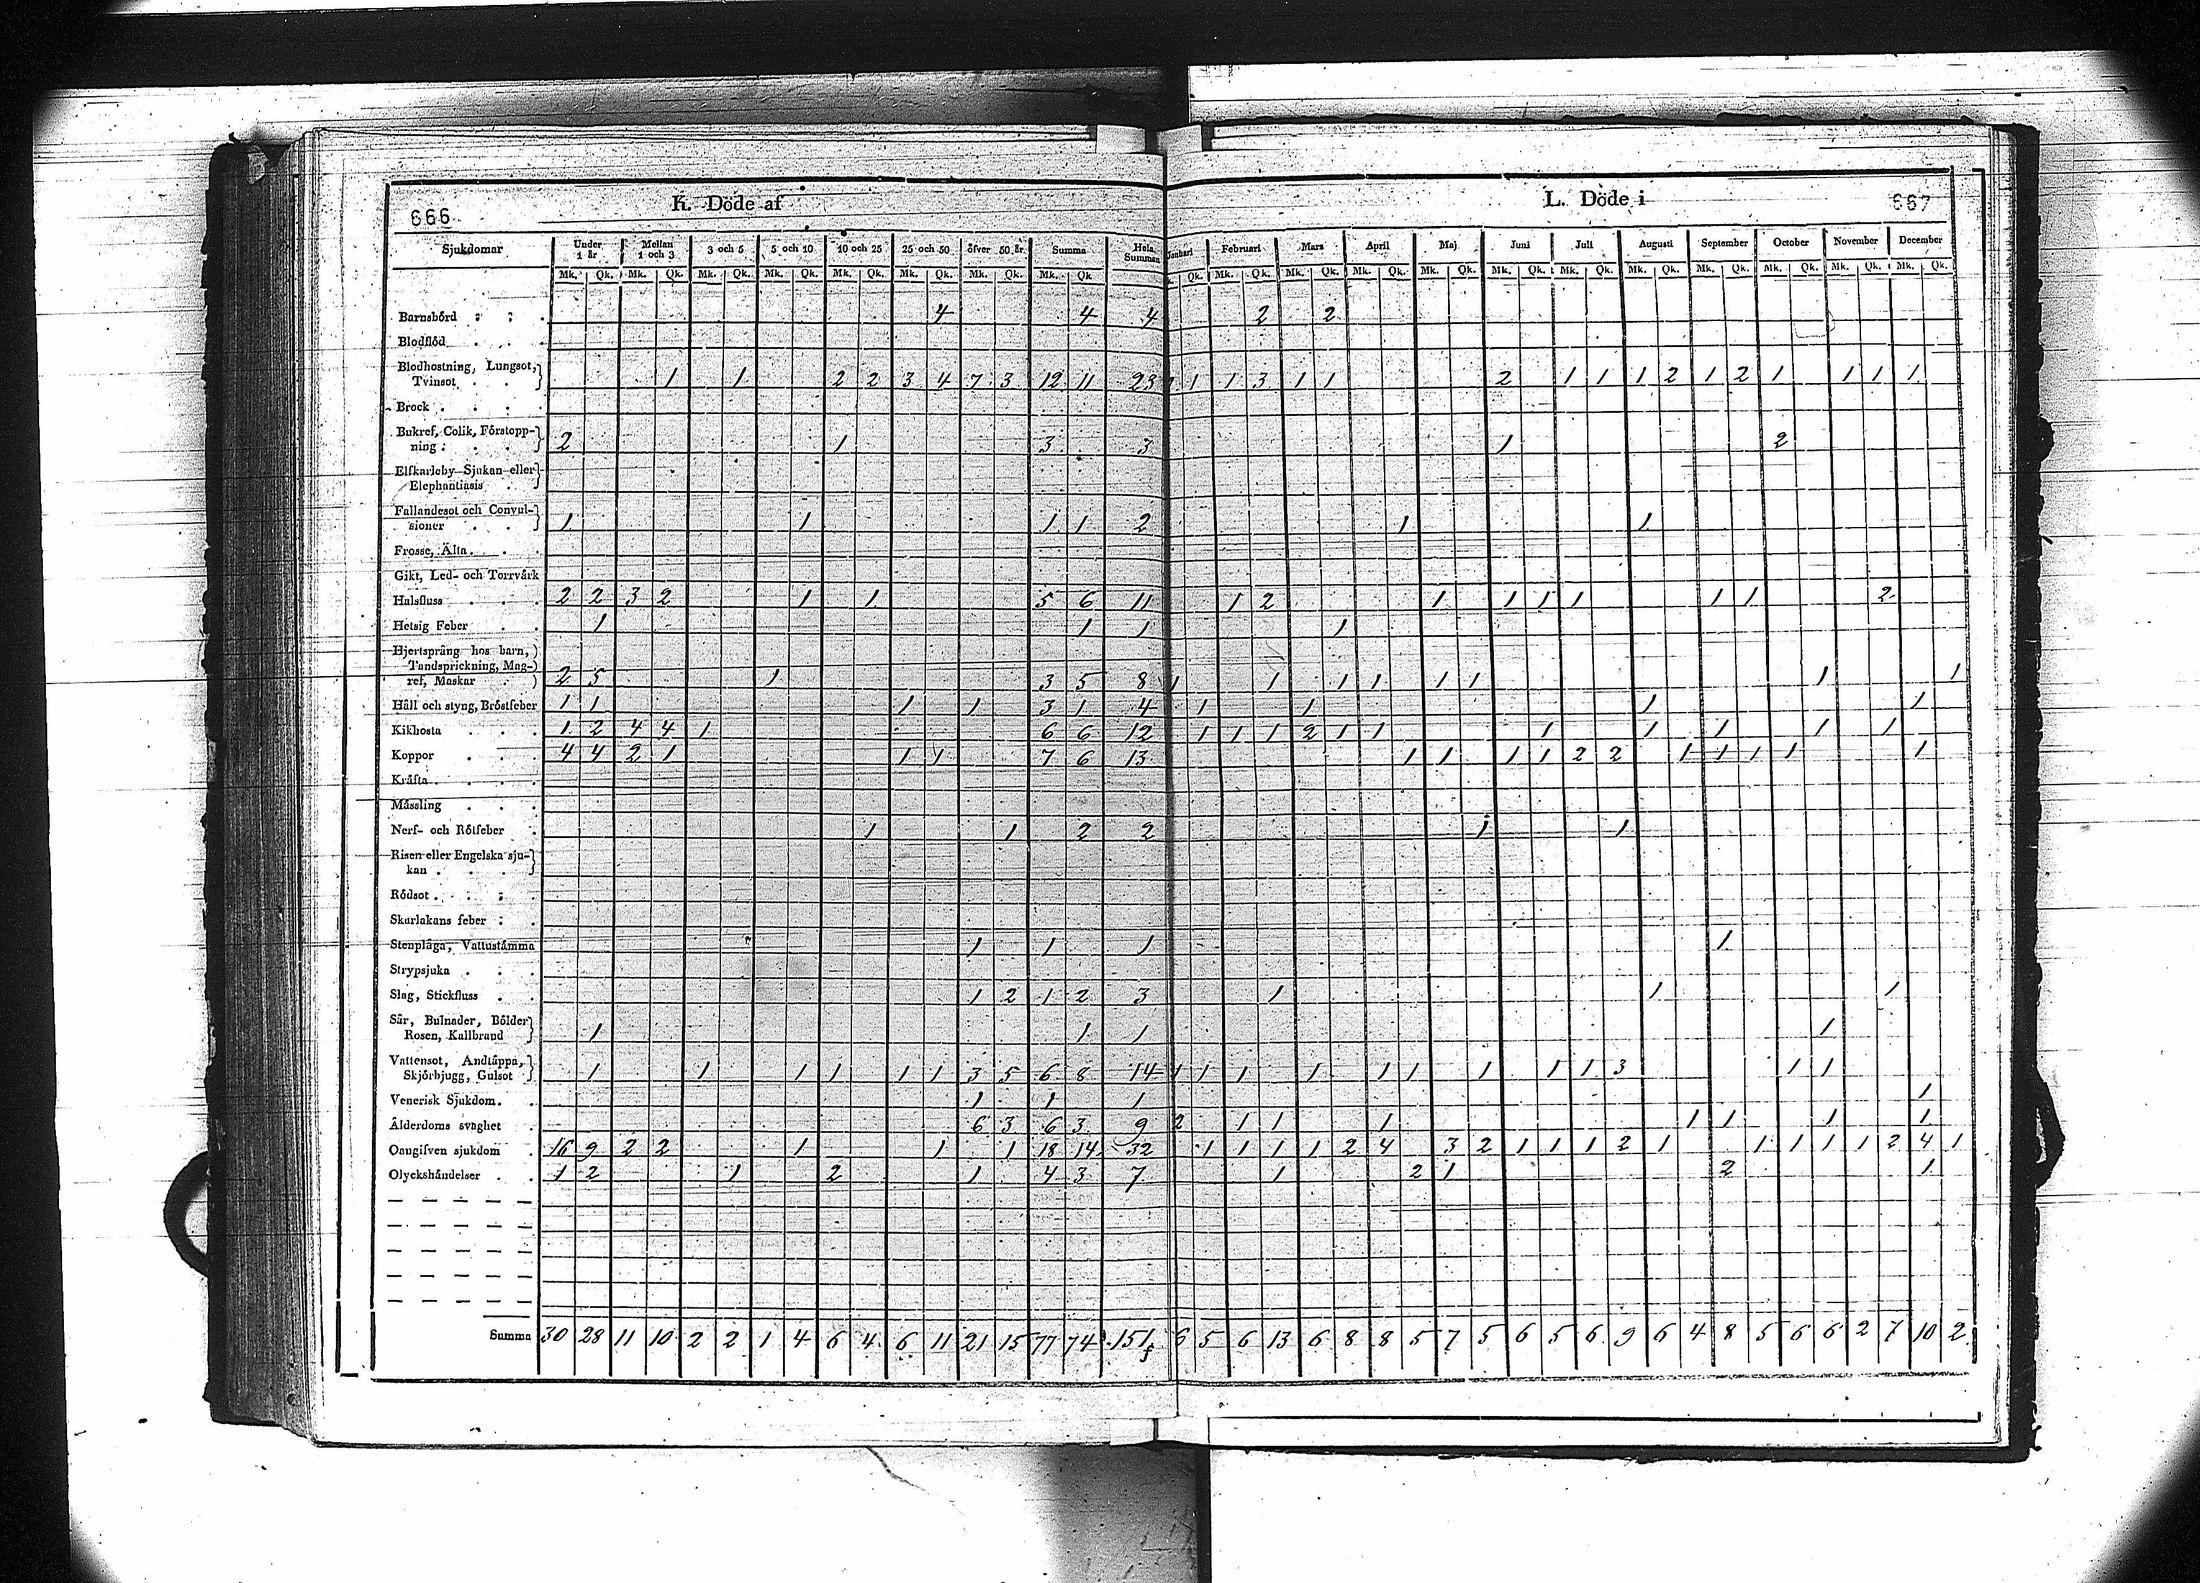 666 K. Döde af
L. Döde i 667
Sjukdomar Under 1 år Mellan 1 och 3 3 och 5 5 och 10 10 och 25 25 och 50 öfver 50 år Summa Hela Summan Januari Februari Mars April Maj Juni Juli Augusti September October November December
Mk. Qk. Mk. Qk. Mk. Qk. Mk. Qk. Mk. Qk. Mk. Qk. Mk. Qk. Mk. Qk Qk. Mk. Qk. Mk. Qk. Mk. Qk. Mk. Qk. Mk. Qk. Mk. Qk. Mk. Qk. Mk. Qk. Mk. Qk. Mk. Qk. Mk. Qk.
Barnsbörd 4 4 4 2 2
Blodflöd
Blodhostning, Lungsot,
Tvinsot 1 1 2 2 3 4 7 3 12 11 23 1 1 3 1 1 2 1 1 1 2 1 2 1 1 1 1
Brock
Bukref, Colik, Förstopp-
ning 2 1 3 3 1 2
Elfkarleby Sjukan eller
Elephantiasis
Fallandesot och Convul-
sioner 1 1 1 1 2 1 1
Frosse, Älta
Gikt, Led- och Torrvärk
Halsfluss 2 2 3 2 1 1 5 6 11 1 2 1 1 1 1 1 1 2
Hetsig Feber 1 1 1 1
Hjertsprång hos barn,
Tandsprickning, Mag-
ref, Maskar 2 5 1 3 5 8 1 1 1 1 1 1 1 1
Håll och styng, Bröstfeber 1 1 1 1 3 1 4 1 1 1 1
Kikhosta 1 2 4 4 1 6 6 12 1 1 1 2 1 1 1 1 1 1 1
Koppor 4 4 2 1 1 1 7 6 13 1 1 1 1 2 2 1 1 1 1 1
Kräfta
Mässling
Nerf- och Rötfeber 1 1 2 2 1 1
Risen eller Engelska sju-
kan
Rödsot
Skarlakans feber
Stenplåga, Vattustämma 1 1 1 1
Strypsjuka
Slag, Stickfluss 1 2 1 2 3 1 1 1
Sår, Bulnader, Bölder
Rosen, Kallbrand 1 1 1 1
Vattensot, Andtäppa,
Skjörbjugg, Gulsot 1 1 1 1 1 1 3 5 6 8 14 1 1 1 1 1 1 1 1 1 3 1 1
Venerisk Sjukdom. 1 1 1 1
Ålderdoms svaghet 6 3 6 3 9 2 1 1 1 1 1 1 1
Oangifven sjukdom 16 9 2 2 1 1 1 18 14 32 1 1 1 1 2 4 3 2 1 1 1 2 1 1 1 1 1 2 4 1
Olyckshändelser 1 2 1 2 1 4 3 7 1 2 1 2 1
Summa 30 28 11 10 2 2 1 4 6 4 6 11 21 15 77 74 151 6 5 6 13 6 8 8 5 7 5 6 5 6 9 6 4 8 5 6 6 2 7 10 2